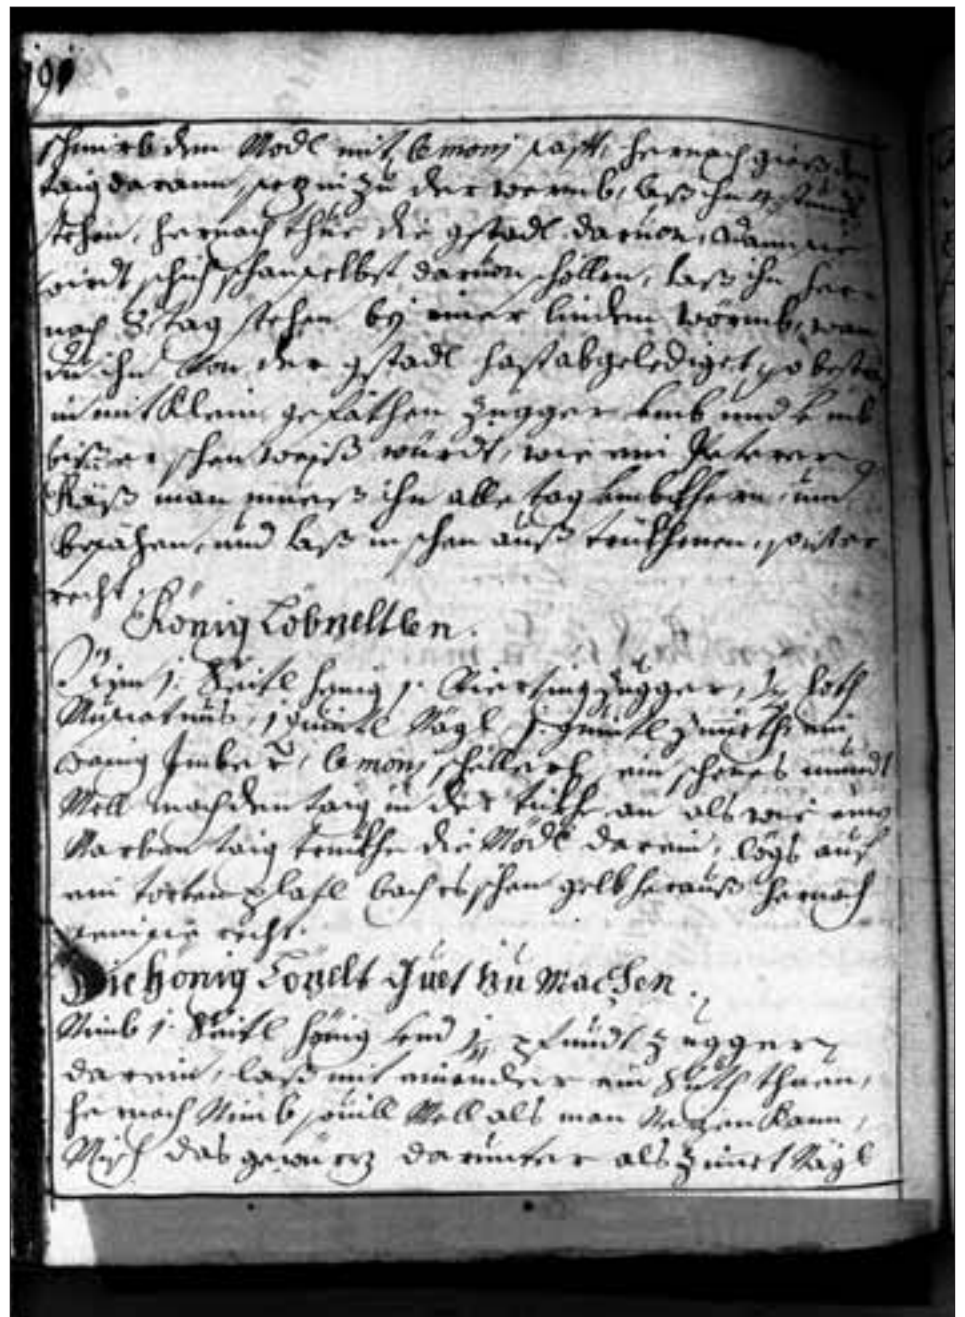 191
schmirb den Modl mit lemonj safft, hernach gieß den
taig daran, sez in zu der wermb, laß ihn stundt
stehen, hernach thue die gstadl daruon, wan sie
wirdt sich schan selbst daruon schöllen, laß ihn her
nach 8 tag stehen bey einer linden wörmb, wan
du ihn von der gstadl hast abgelediget, so bestä
in mit Klein gefäthen Zugger vmb und vmb
biß er schen weiß würdt, wie ein
Käß man mueß ihn alle tag vmbkheren, und
besähen, und laß in schen auß trükhnen, so ist er
recht.
Hönig Lözeltlen.
Nimm 1. Seitl hönig 1. Vierting Zugger, loth
Muscatnus, 1 quintl Nägl, 1. quintl Zimeth ein
wenig Imber, lemonj schellerl, ein schenes mundt
Mell mach den taig in der dikhe an als wie ein
Marben taig trukhe die Mödl darein, lögs auf
ein torten blatl bach es schen gelb herauß hernach
sein sie recht.
Die hönig Lözelt Guet zu Machen.
Nimb 1. Seitl hönig vnd pfundt Zugger
darein, laß mit einander ein Sutt thuen,
hernach Nimb souill Mell als man Nezen kann,
Misch das gewürz darunter als Zimet Nägl